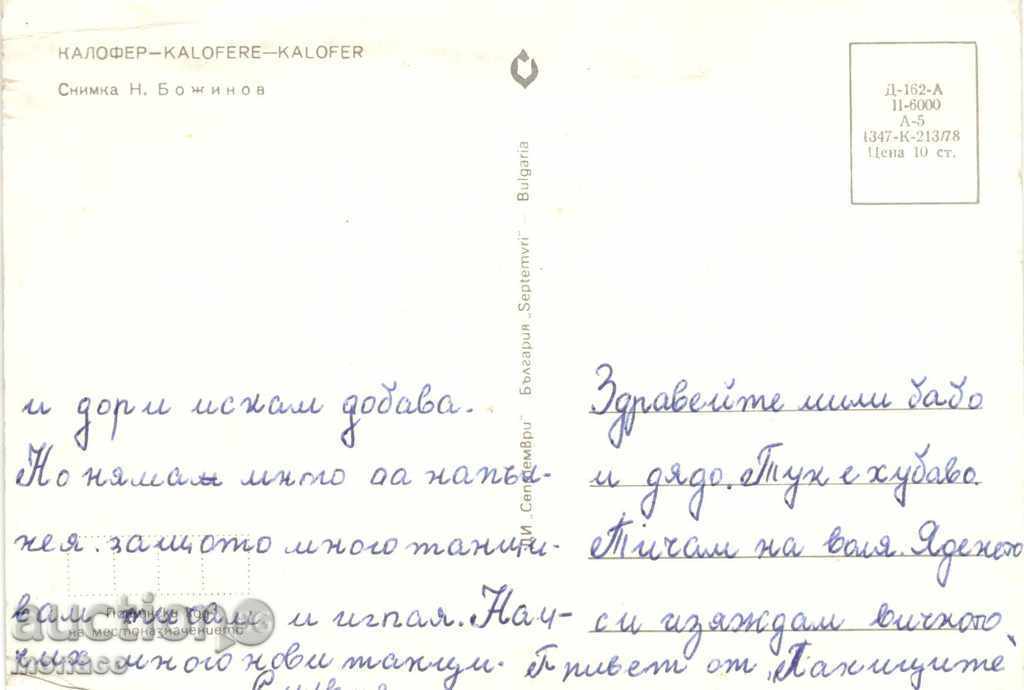 КАЛОФЕР—KALOFERE—KALOFER
Снимка Н. Божинов
Д-162-А
П-6000
А-5
1347-К-213/78
Цена 10 ст.
ДИ „Септември" България „Septemvri" — Bulgaria
Здравейте мили бабо
и дядо. Тук е хубаво.
Тичам на воля. Яденето
си изяждам вичкото
и дори искам добава.
Но нямам мнго да напъл-
нея. защото много танцу-
вам тичам и играя. Нау-
чих много нови танци. Привет от
Пощенски код
на местоназначението
auctionро
monaco